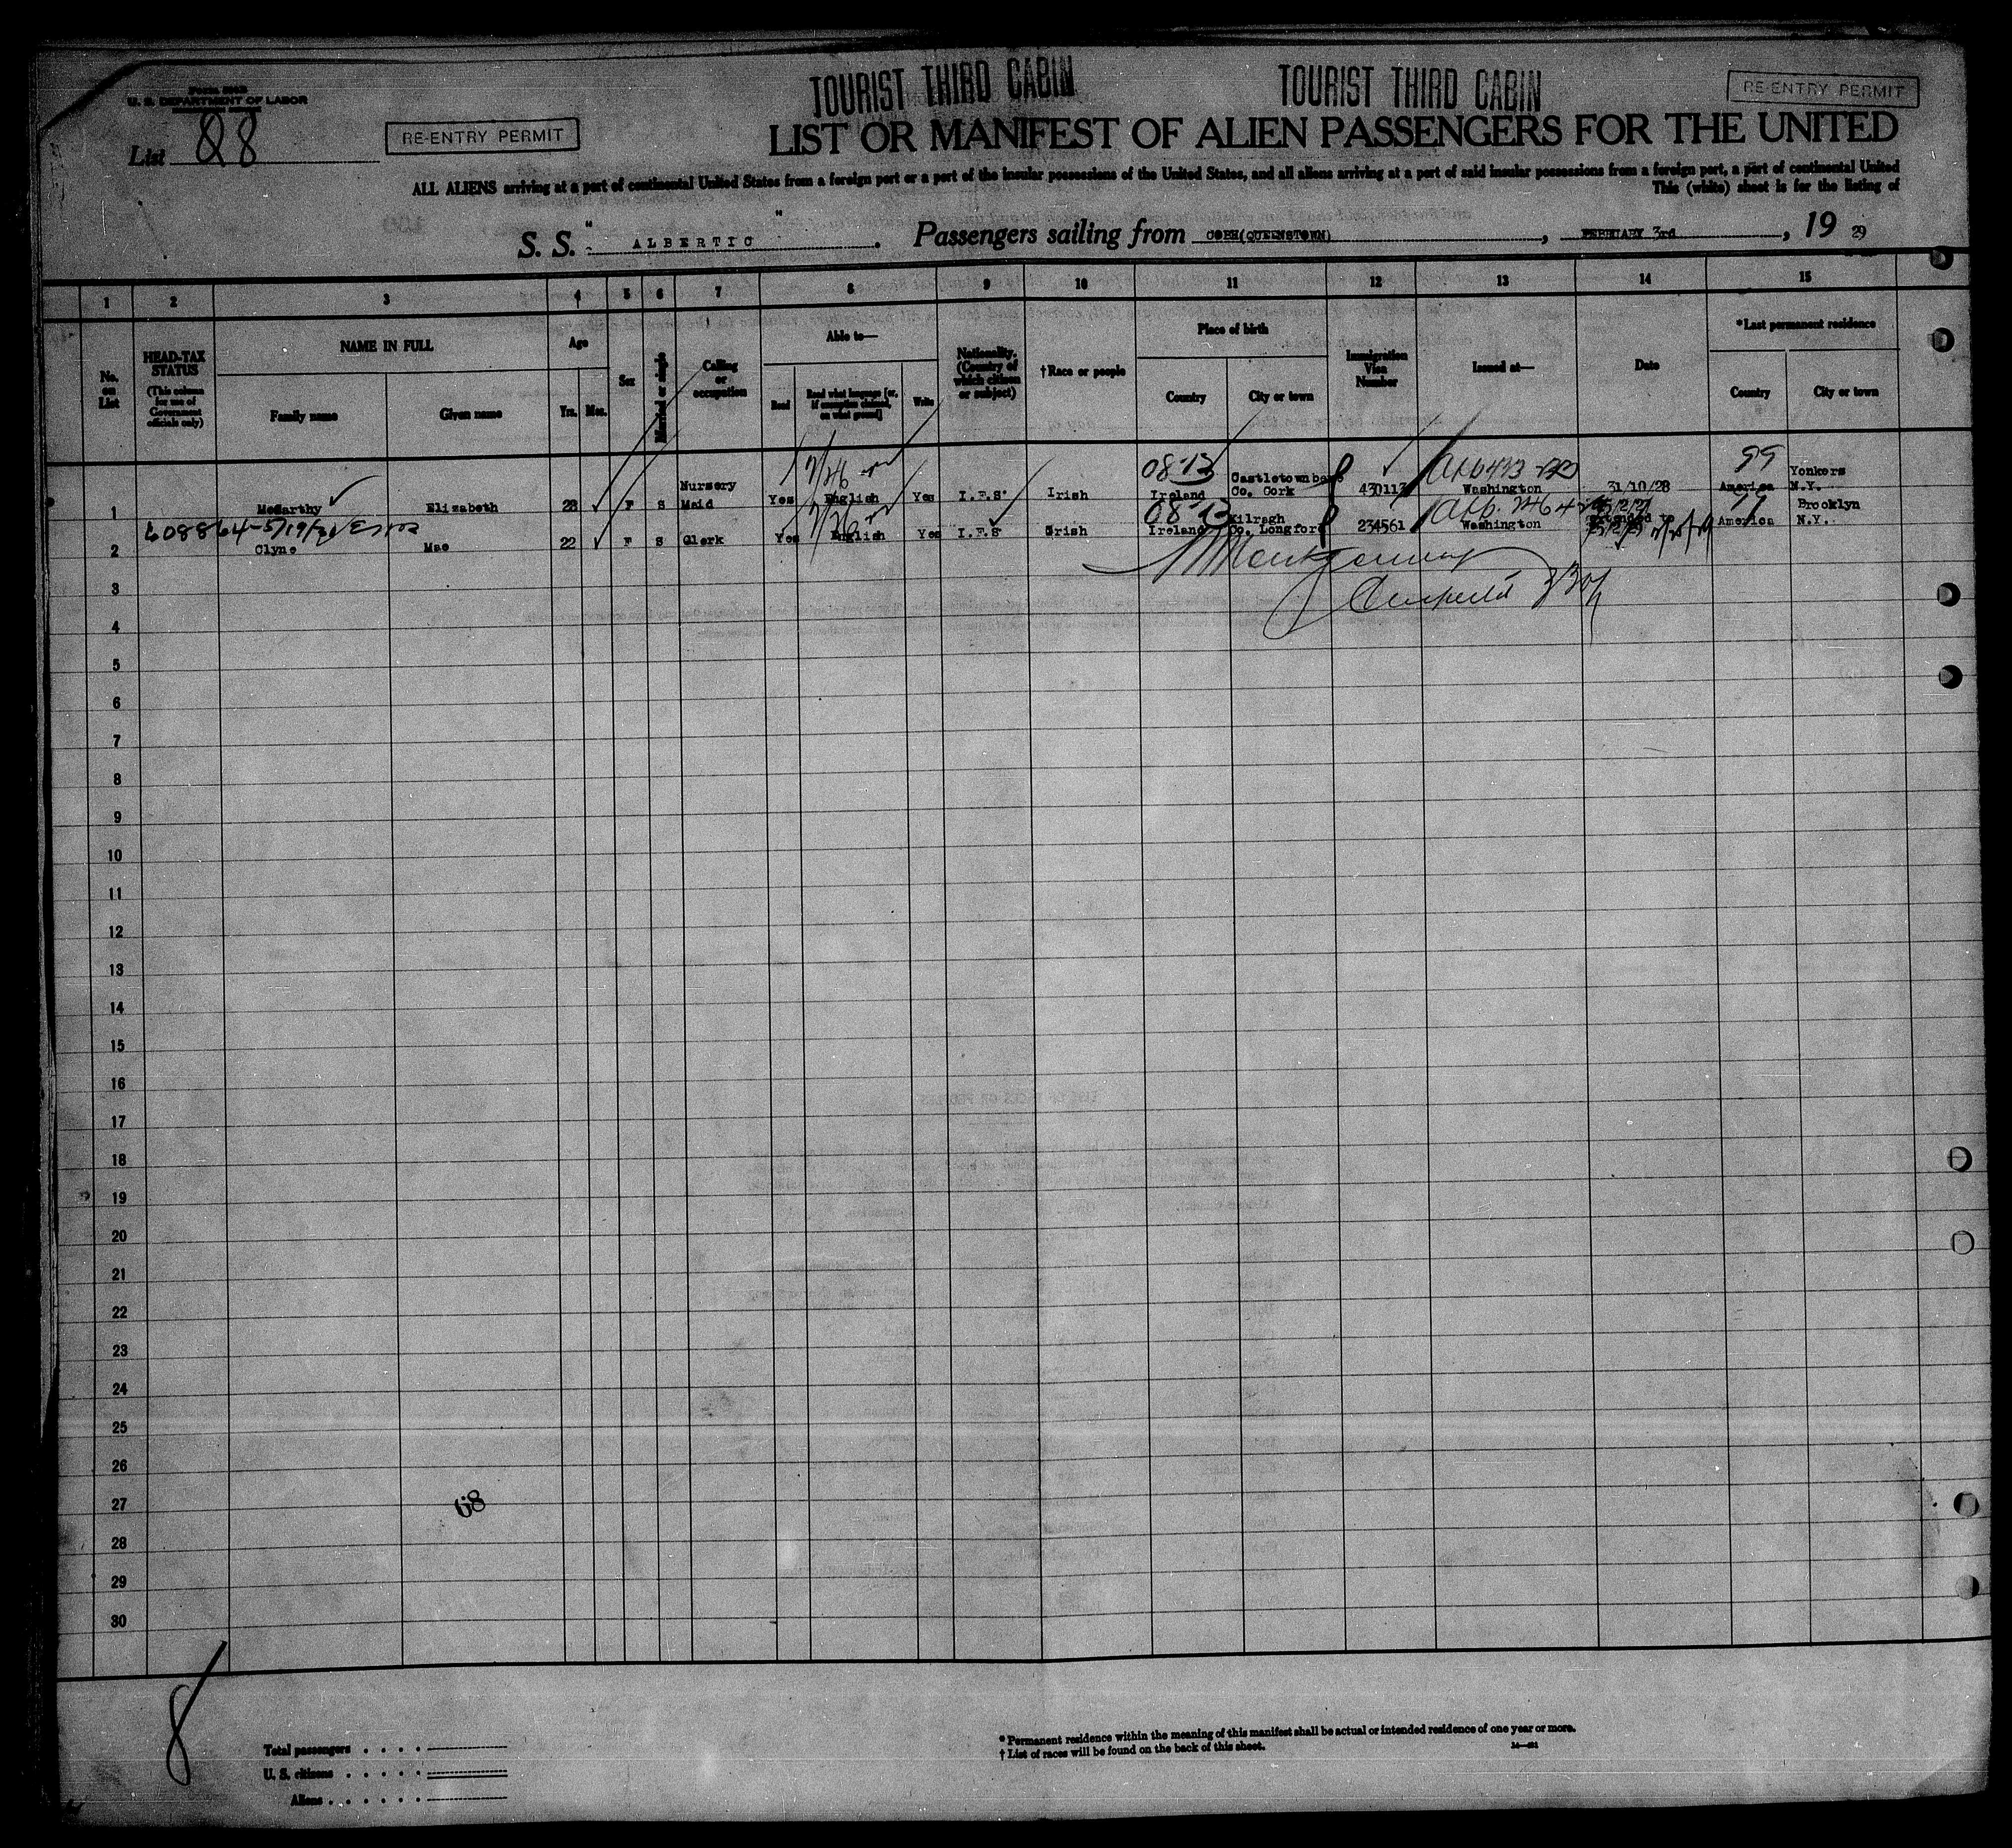 Form 500B
U. S. DEPARTMENT OF LABOR
TOURIST THIRD CABIN
TOURIST THIRD CABIN
RE-ENTRY PERMIT
List 88
RE-ENTRY PERMIT
LIST OR MANIFEST OF ALIEN PASSENGERS FOR THE UNITED
ALL ALIENS arriving at a port of continental United States from a foreign port or a port of the insular possessions of the United States, and all aliens arriving at a port of said insular possessions from a foreign port, a port of continental United
This (white) sheet is for the listing of
S. S. " ALBERTIC " . Passengers sailing from COBH(QUEENSTOWN) , FEBRUARY 3rd , 19 29
1 2 3 4 5 6 7 8 9 10 11 12 13 14 15
No. on List
HEAD-TAX STATUS
(This column for use of Government officials only)
NAME IN FULL
Family name
Given name
Age
Yrs. Mos.
Sex
Married or single
Calling or occupation
Able to—
Read
Read what language [or, if exemption claimed, on what ground]
Write
Nationality. (Country of which citizen or subject)
†Race or people
Place of birth
Country
City or town
Immigration Visa Number
Issued at—
Date
*Last permanent residence
Country
City or town
1 McCarthy Elizabeth 28 F S Nursery Maid Yes English Yes I.F.S. Irish 08-13 Ireland Castletownbere Co. Cork 430113 Washington 31/10/28 99 America Yonkers N.Y.
2 Clyne Mae 22 F S Clerk Yes English Yes I.F.S Irish 08-13 Ireland Kilragh Co. Longford 234561 Washington America Brooklyn N.Y.
3
4
5
6
7
8
9
10
11
12
13
14
15
16
17
18
19
20
21
22
23
24
25
26
27
68
28
29
30
8
Total passengers . . . .
U. S. citizens . . . . .
Aliens . . . . . .
* Permanent residence within the meaning of this manifest shall be actual or intended residence of one year or more.
† List of races will be found on the back of this sheet.